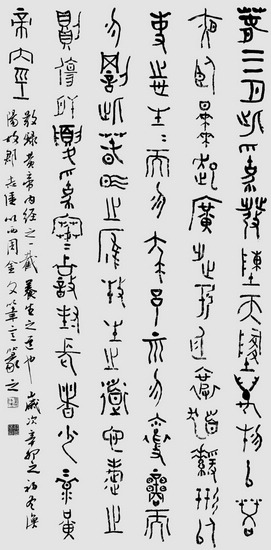 春三月此為發陳天地俱生萬物以榮
夜臥早起廣步於庭被髮緩形以
使志生生而勿殺予而勿奪賞而
勿罰此春氣之應養生之道也逆之
則傷肝夏為寒變奉長者少黃
帝內經
敬錄黃帝內經之一截養生之道也歲次辛卯之初冬
以西周金文筆意篆之